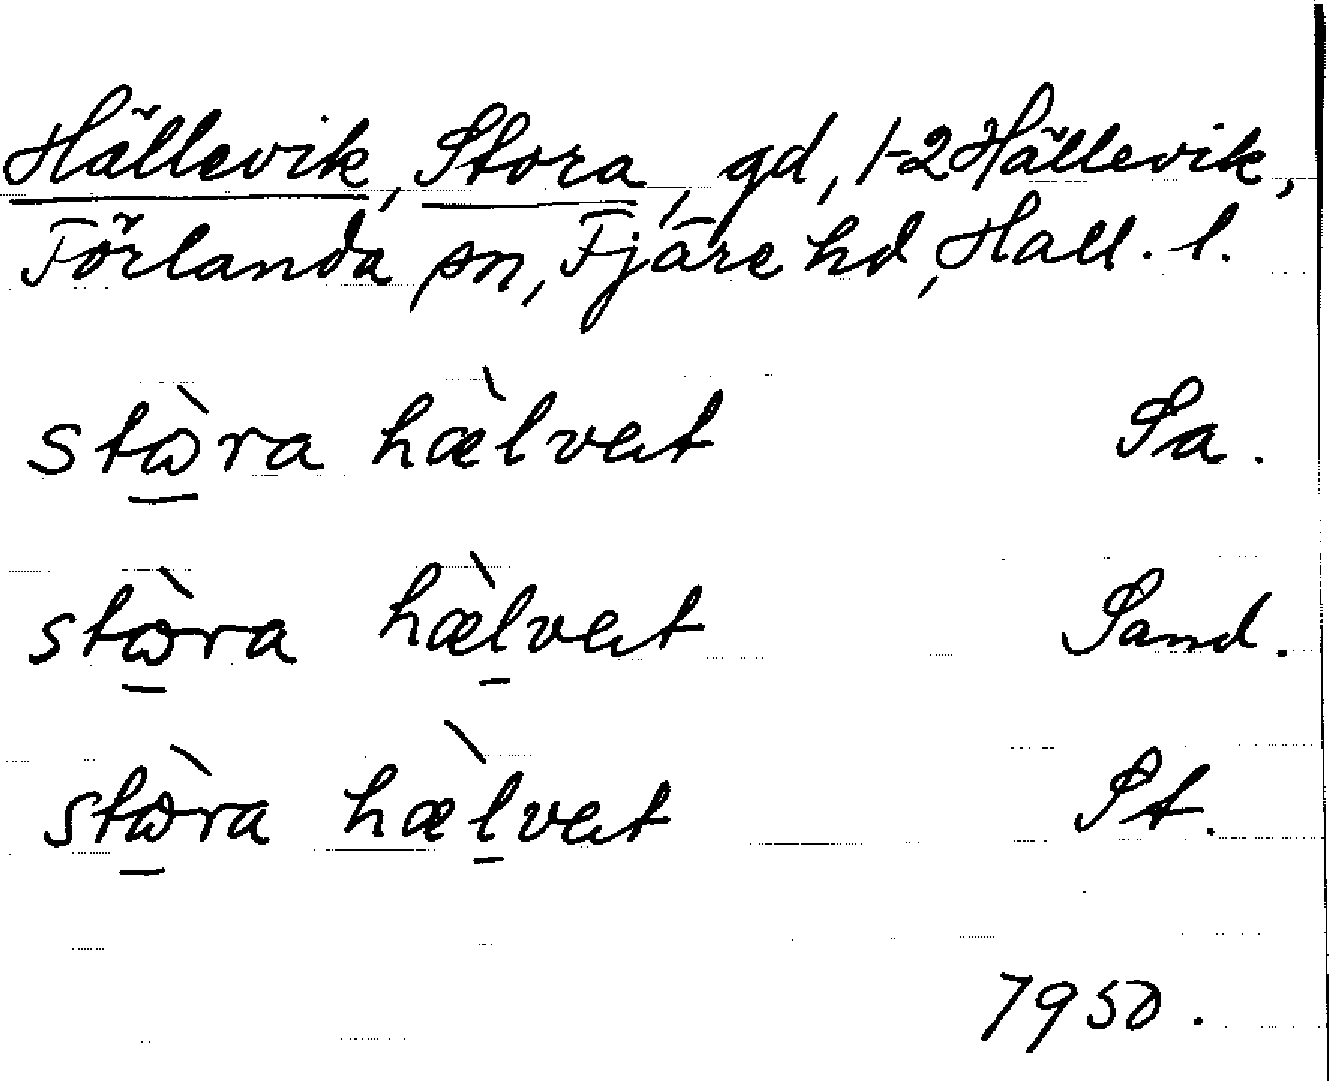 Hällevik, Stora, gd, 1-2 Hällevik,
Förlanda sn, Fjäre hd, Hall. l.
stɷ̀ra hæ̀lvet Sa.
stɷ̀ra hæ̀lvet Sand.
stɷ̀ra hæ̀lvet St.
1950.